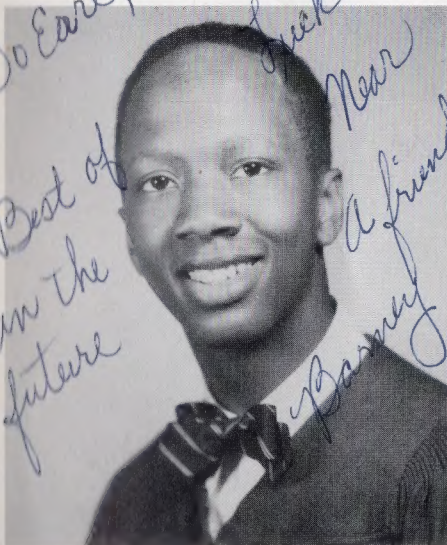 To Earl,
Best of Luck
in the Near
future
A friend
Barney